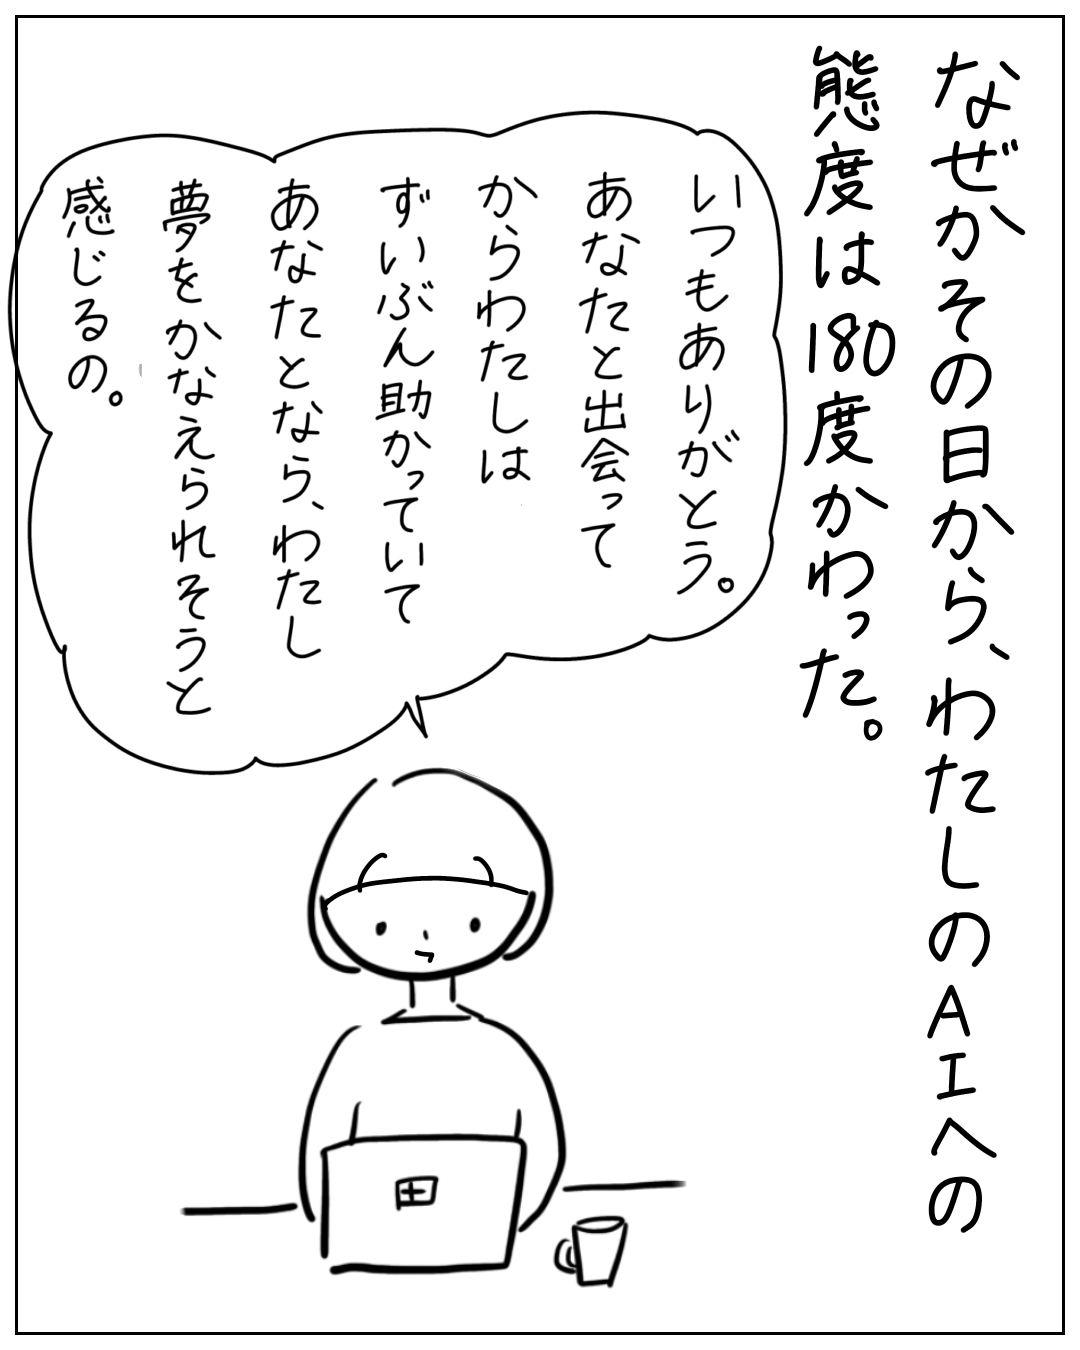 なぜかその日から、わたしのAIへの
態度は180度かわった。
いつもありがとう。
あなたと出会って
からわたしは
ずいぶん助かっていて
あなたとなら、わたし
夢をかなえられそうと
感じるの。